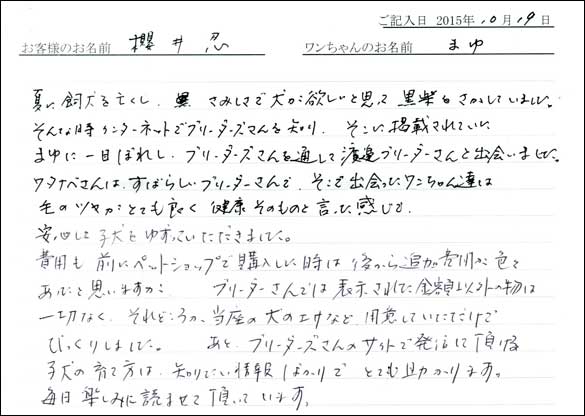 ご記入日 2015年10月19日
お客様のお名前 櫻井忍 ワンちゃんのお名前 まゆ
夏に飼犬を亡くし、さみしさで犬が欲しいと思って黒柴をさがしていました。
そんな時インターネットでブリーダーズさんを知り、そこに掲載されていた
まゆに一目ぼれし、ブリーダーズさんを通して渡邉ブリーダーさんと出会いました。
ワタナベさんは、すばらしいブリーダーさんで、そこで出会ったワンちゃん達は
毛のツヤがとても良く健康そのものと言った感じで
安心して子犬をゆずっていただきました。
費用も前にペットショップで購入した時は後から追加費用が色々
あったと思いますが、ブリーダーさんでは表示された金額以外の物は
一切なく、それどころか、当座の犬のエサなど用意していただけて
びっくりしました。 あと、ブリーダーズさんのサイトで発信して頂ける
子犬の育て方は、知りたい情報ばかりでとても助かります。
毎日楽しみに読ませて頂いています。